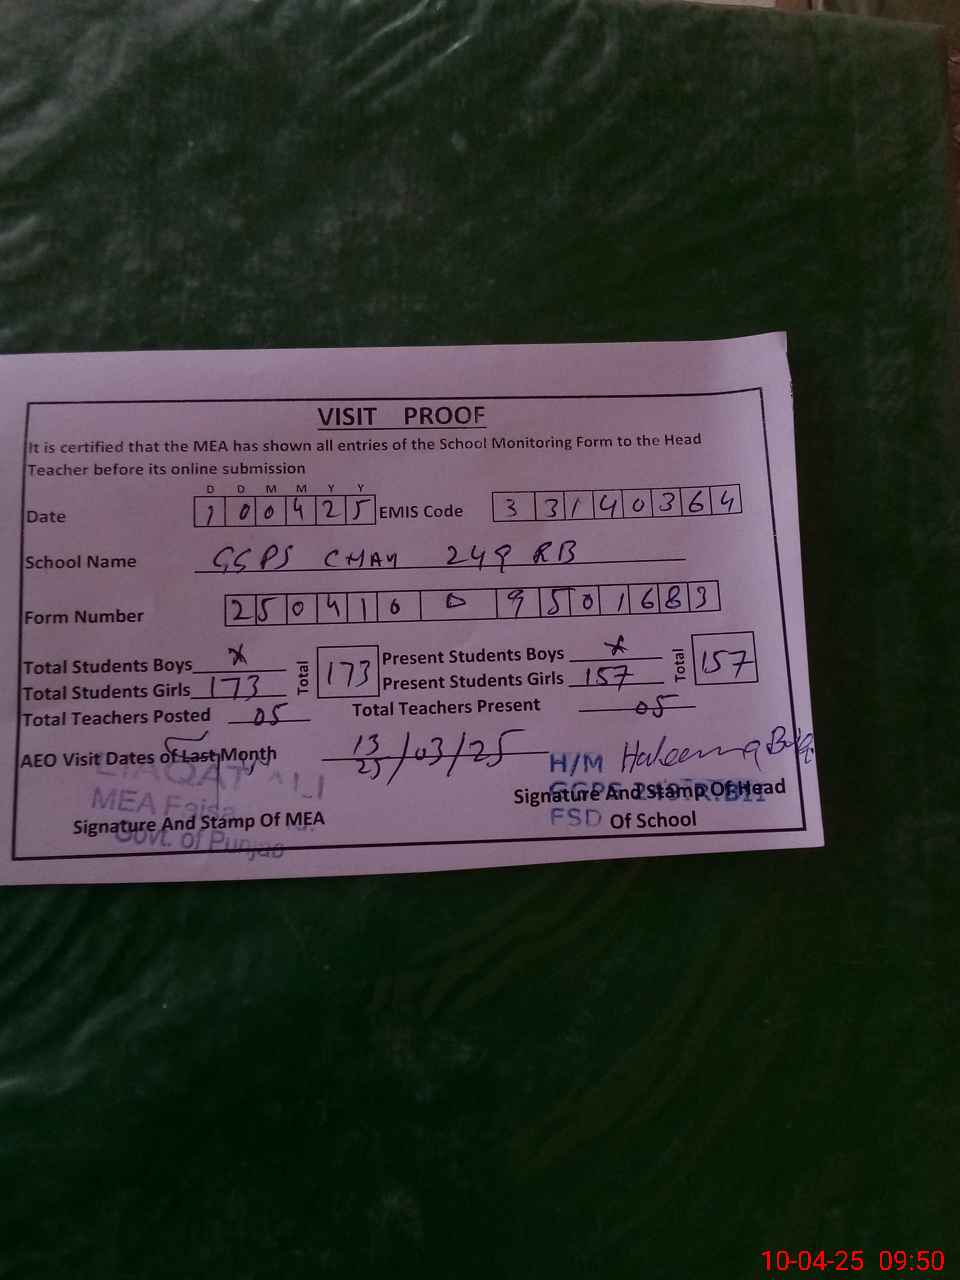 VISIT PROOF
It is certified that the MEA has shown all entries of the School Monitoring Form to the Head
Teacher before its online submission
D D M M Y Y
Date 1 0 0 4 2 5 EMIS Code 3 3 1 4 0 3 6 4
School Name GGPS CHAK 249 RB
Form Number 2 5 0 4 1 0 0 9 5 0 1 6 8 3
Total Students Boys x Total 173 Present Students Boys x Total 157
Total Students Girls 173 Present Students Girls 157
Total Teachers Posted 05 Total Teachers Present 05
AEO Visit Dates of Last Month 13/25/03/25
LIAQAT ALI
MEA
Govt. of Punjab
Signature And Stamp Of MEA
H/M Haleema
GGPS
FSD
Signature And Stamp Of Head
Of School
10-04-25 09:50